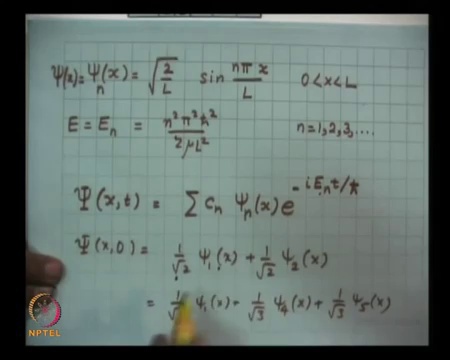 Ψ(x) = Ψₙ(x) = √(2/L) sin nπx/L 0<x<L
E = Eₙ = n²π²ℏ²/2μL² n=1,2,3,....
Ψ(x,t) = Σ cₙ Ψₙ(x) e^(-iEₙt/ℏ)
Ψ(x,0) = 1/√2 Ψ₁(x) + 1/√2 Ψ₂(x)
= Ψ₁(x) - 1/√3 Ψ₄(x) + 1/√3 Ψ₅(x)
NPTEL